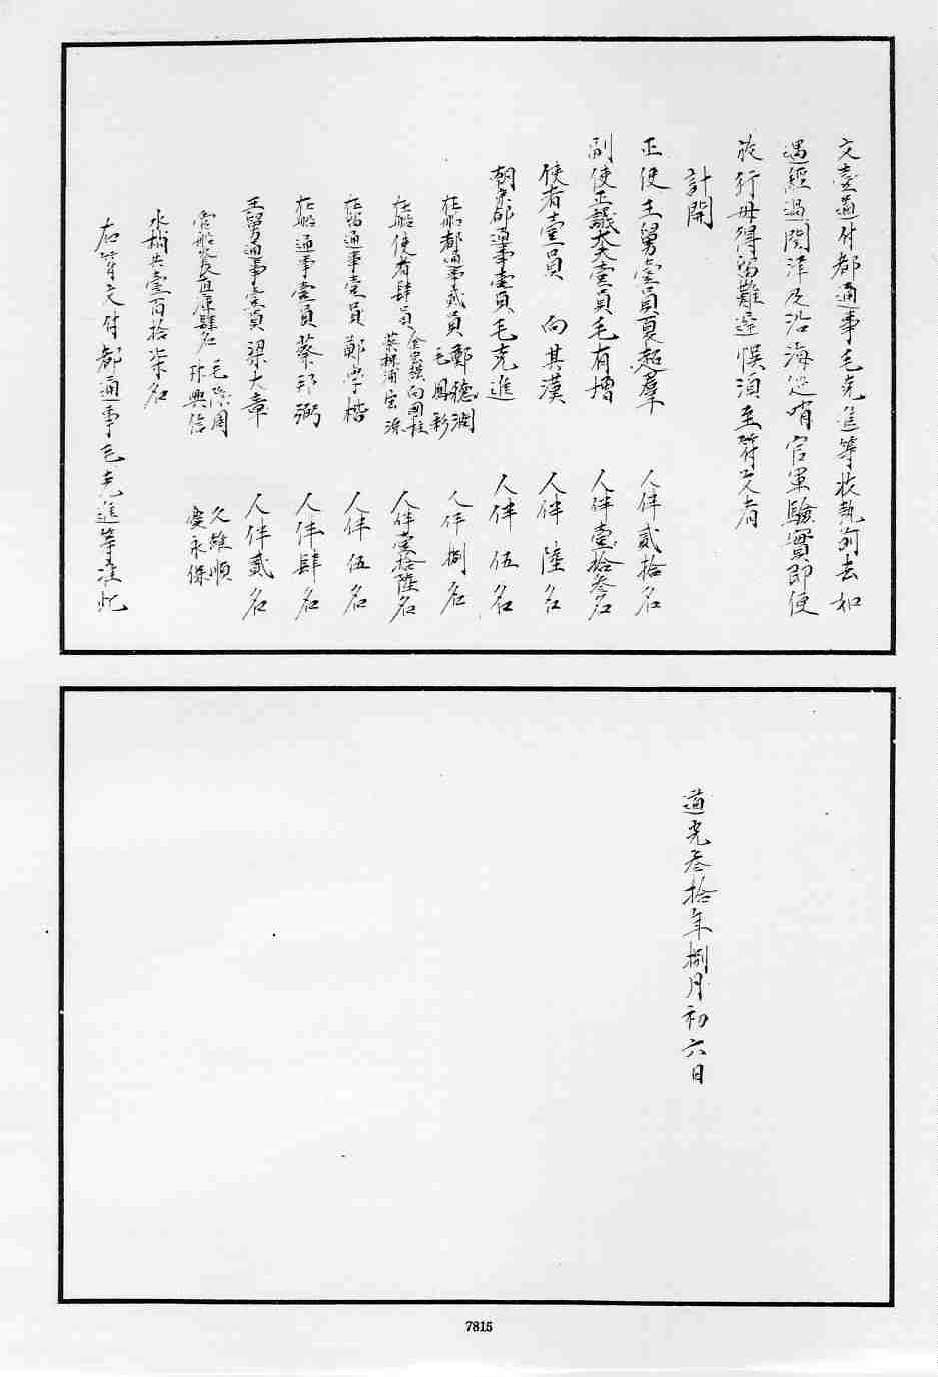 文壹道付都通事毛克進等收執前去如
遇經過關津及沿海巡哨官軍驗實即便
放行毋得留難遲悞須至符文者
計開
正使王舅壹員夏超羣 人伴貳拾名
副使正議大夫壹員毛有增 人伴壹拾叁名
使者壹員 向其漢 人伴 陸 名
朝京都通事壹員毛克進 人伴 伍 名
在船都通事貳員 鄭德潤 毛鳳彩 人伴 捌 名
在船使者肆員 向國柱 人伴壹拾陸名
在留通事壹員 鄭學楷 人伴 伍 名
在船通事壹員 蔡邦弼 人伴 肆 名
王舅通事壹員 梁大章 人伴 貳 名
管船火長直庫肆名 毛際周 孫興信 久維順 慶永保
水梢共壹百拾柒名
右符文付都通事毛克進等准此
道光叁拾年捌月初六日
7815